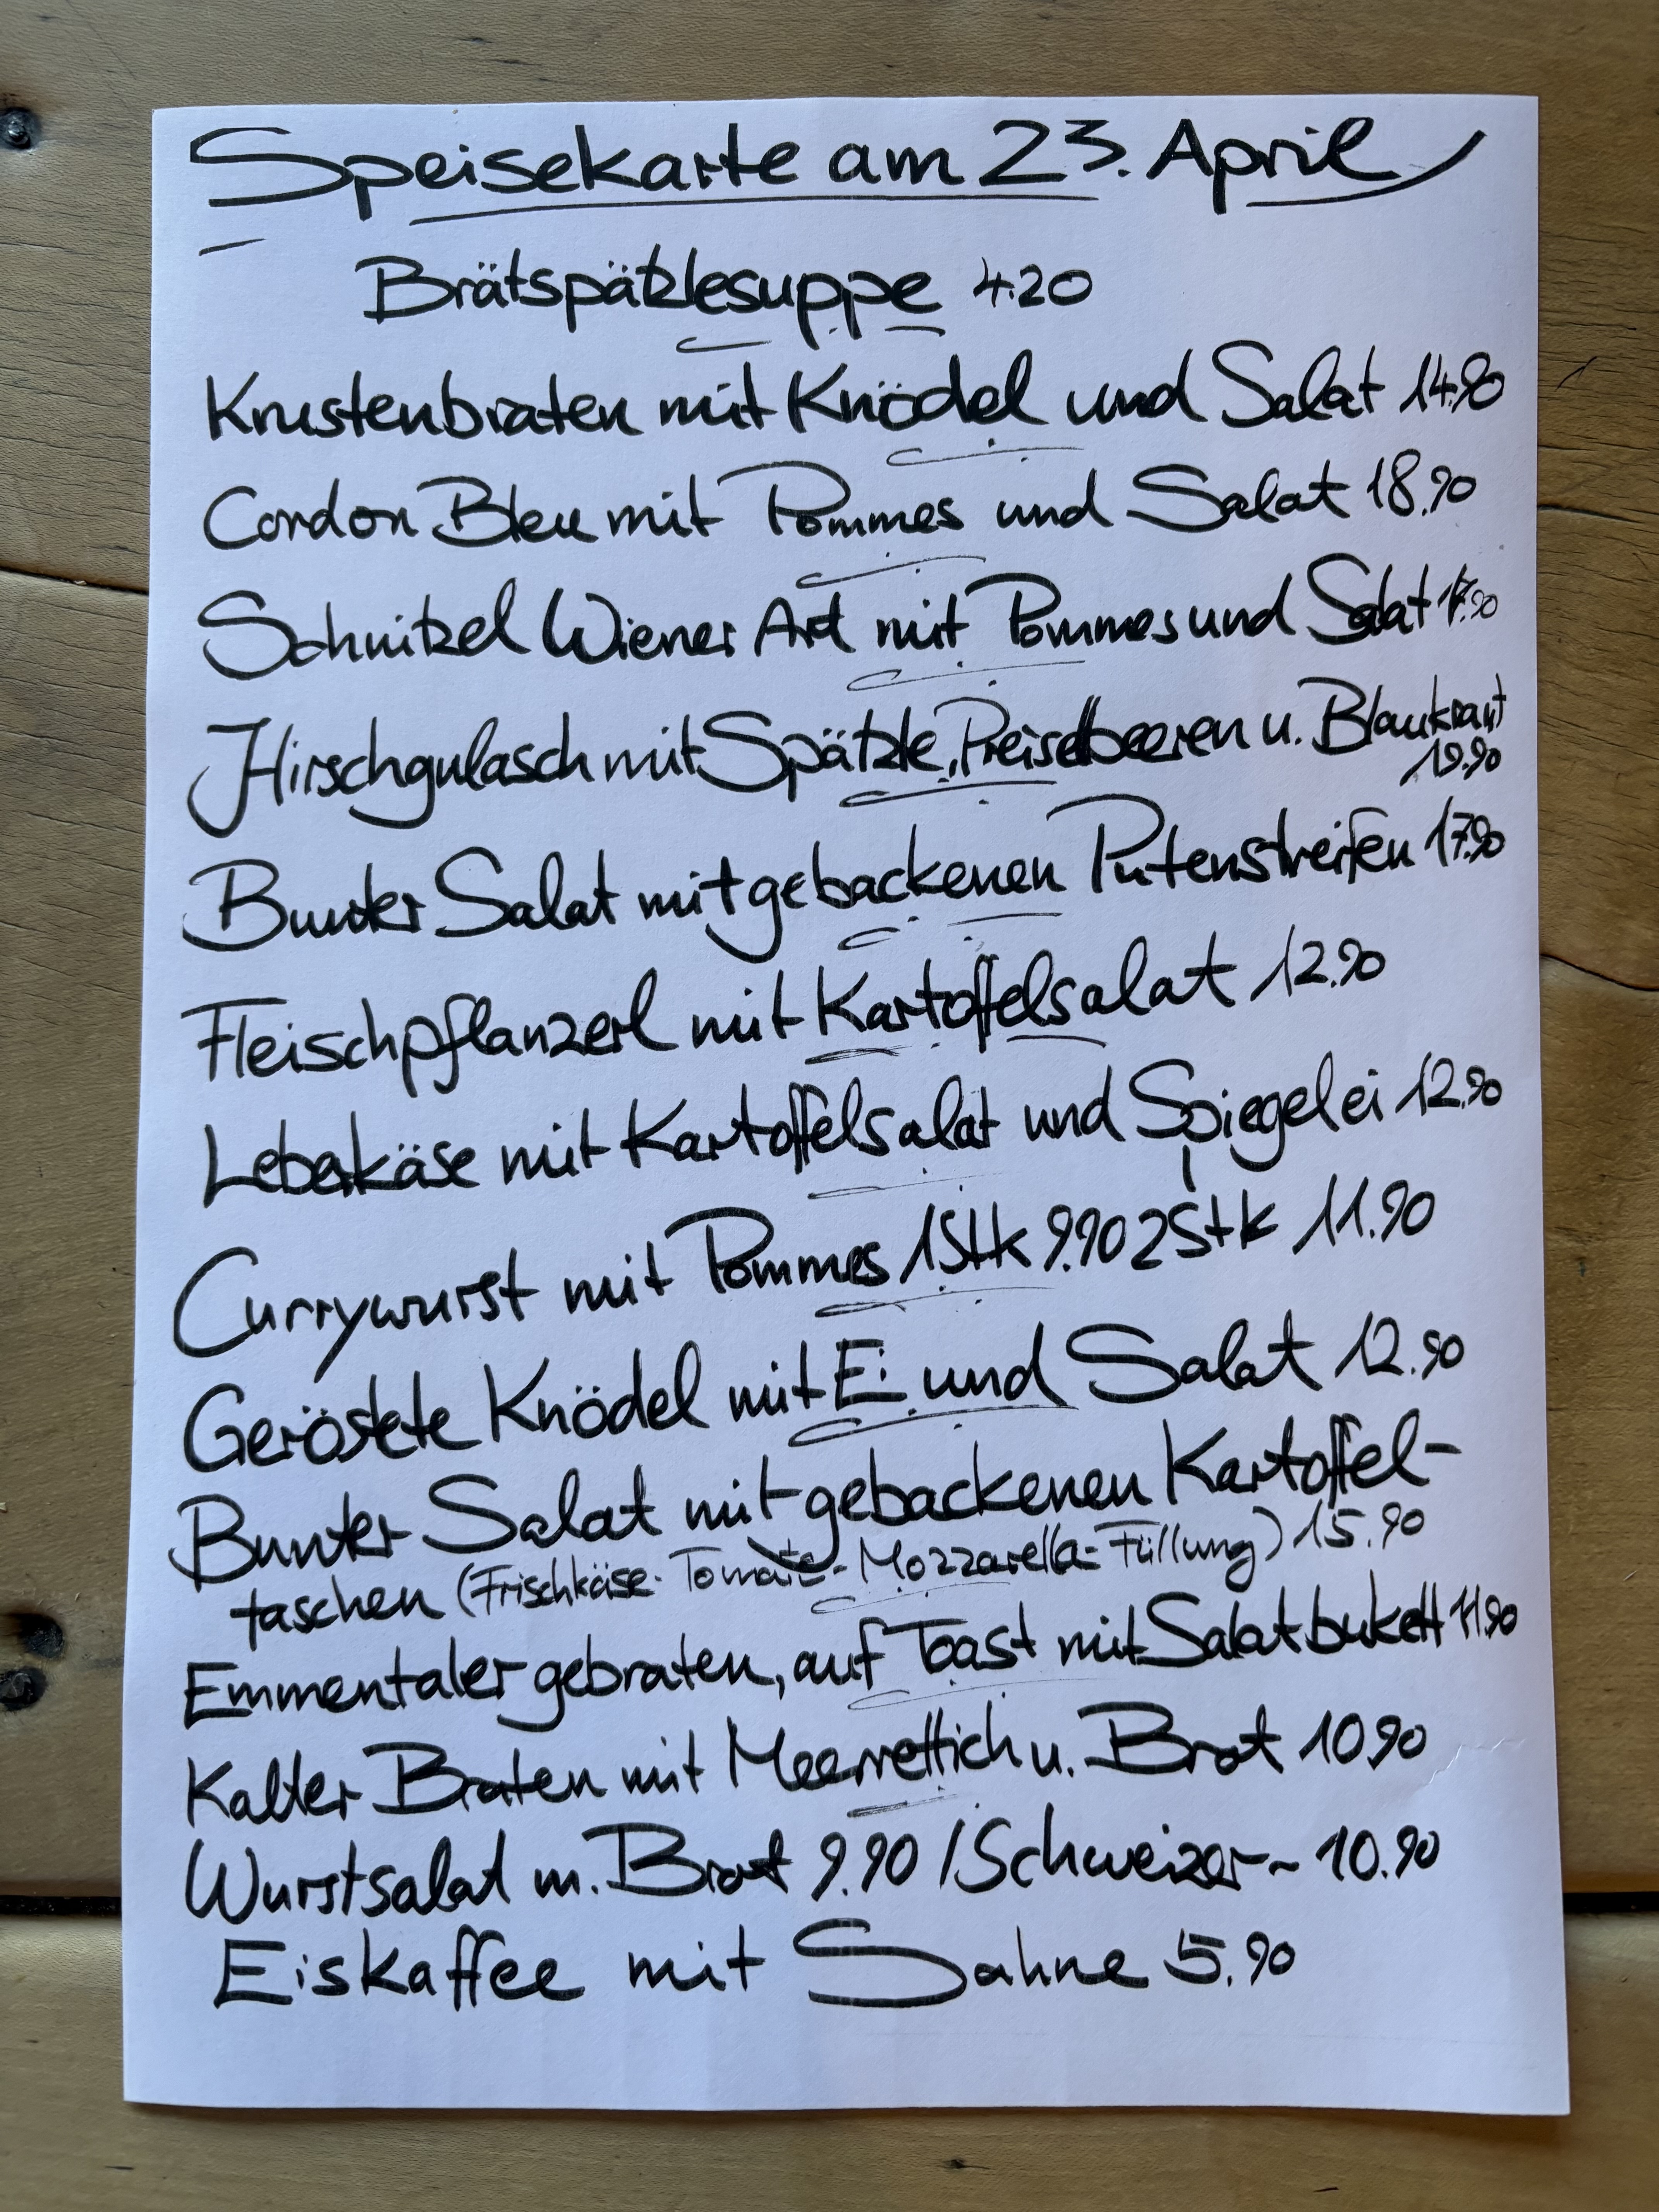 Speisekarte am 23. April
Brätspätzlesuppe 4.20
Krustenbraten mit Knödel und Salat 14.90
Cordon Bleu mit Pommes und Salat 18.90
Schnitzel Wiener Art mit Pommes und Salat
Hirschgulasch mit Spätzle, Preiselbeeren u. Blaukraut
19.90
Bunter Salat mit gebackenen Putenstreifen 17.90
Fleischpflanzerl mit Kartoffelsalat 12.90
Leberkäse mit Kartoffelsalat und Spiegelei 12.90
Currywurst mit Pommes 1Stk 9.90 2Stk 11.90
Geröstete Knödel mit Ei und Salat 12.90
Bunter Salat mit gebackenen Kartoffel-
taschen (Frischkäse-Tomate-Mozzarella-Füllung) 15.90
Emmentaler gebraten, auf Toast mit Salatbukett 11.90
Kalter Braten mit Meerrettich u. Brot 10.90
Wurstsalat m. Brot 9.90 / Schweizer~ 10.90
Eiskaffee mit Sahne 5.90